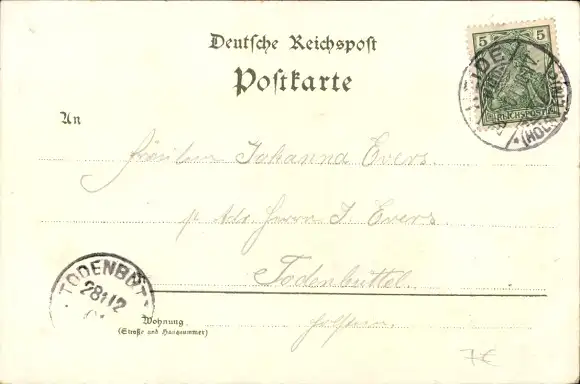 Deutsche Reichspost
Postkarte
5 5
REICHSPOST
HEIDE
(HOLSTEIN)
An
Fräulein Johanna Evers.
p. Adr. Herrn J. Evers
Todenbüttel
Holstein.
TODENBÜT
28 12
Wohnung
(Straße und Hausnummer)
7€